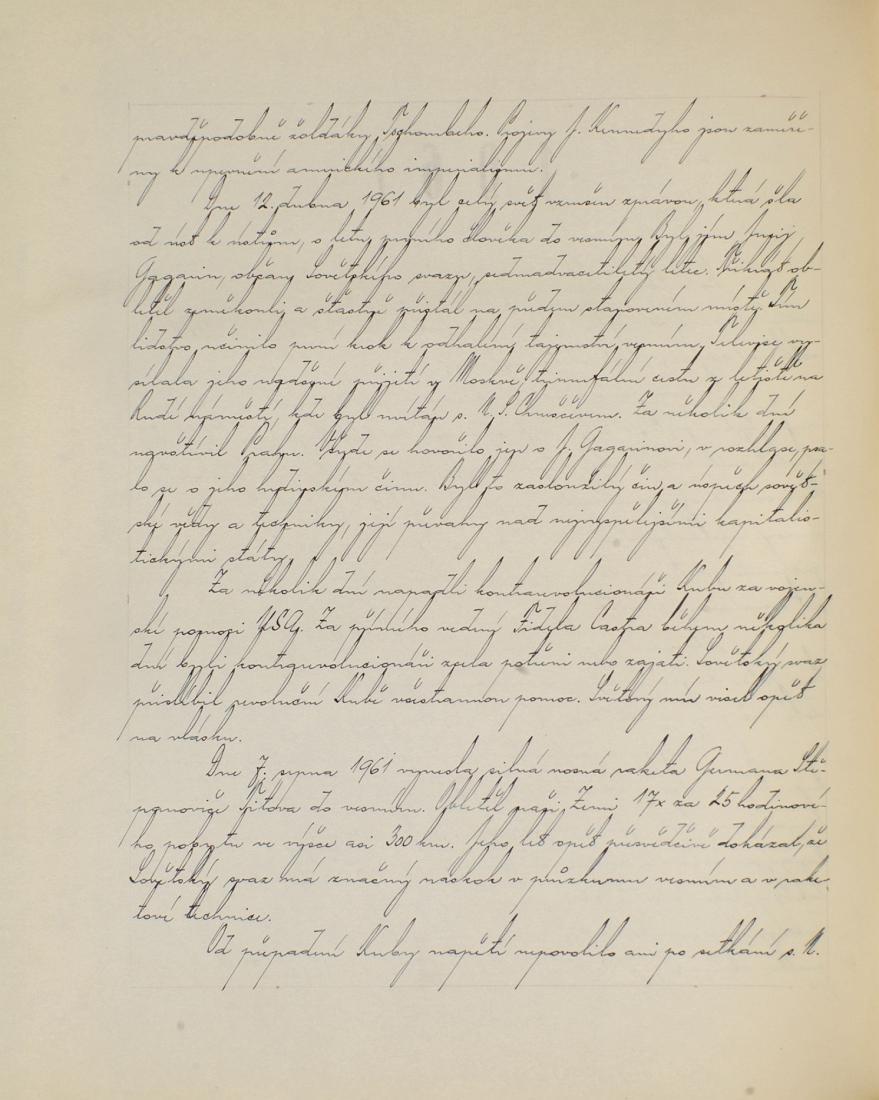 pravděpodobně žoldáky Tschombeho. Projevy J. Kennedyho jsou zaměře-
ny k upevnění amerického imperialismu.
Dne 12. dubna 1961 byl celý svět vzrušen zprávou, která šla
od úst k ústům, o letu prvního člověka do vesmíru. Byl jím Jurij
Gagarin, občan Sovětského svazu, sedmadvacetiletý letec. Třikrát ob-
letěl zeměkouli a šťastně přistál na předem stanoveném místě. Tím
lidstvo učinilo první krok k odhalení tajemství vesmíru. Televise vy-
sílala jeho nadšené přijetí v Moskvě, triumfální cestu z letiště na
Rudé náměstí, kde byl uvítán s. N. S. Chruščevem. Za několik dní
navštívil Prahu. Všude se hovořilo jen o J. Gagarinovi, v rozhlase, psa-
lo se o jeho hrdinském činu. Byl to záslužný čin a úspěch sovět-
ské vědy a techniky, její převahy nad nejvyspělejšími kapitalis-
tickými státy.
Za několik dní napadli kontrarevolucionáři Kubu za vojen-
ské pomoci USA. Za přímého vedení Fidela Castra během několika
dní byli kontrarevolucionáři zcela potřeni nebo zajati. Sovětský svaz
přislíbil revoluční Kubě všestrannou pomoc. Světový mír visel opět
na vlásku.
Dne 7. srpna 1961 vynesla silná nosná raketa Germana Stě-
panoviče Titova do vesmíru. Obletěl naši Zemi 17x za 25 hodinové-
ho pobytu ve výšce asi 300 km. Jeho let opět přesvědčivě dokázal, že
Sovětský svaz má značný náskok v průzkumu vesmíru a v rake-
tové technice.
Od přepadení Kuby napětí nepovolilo ani po setkání s. N.